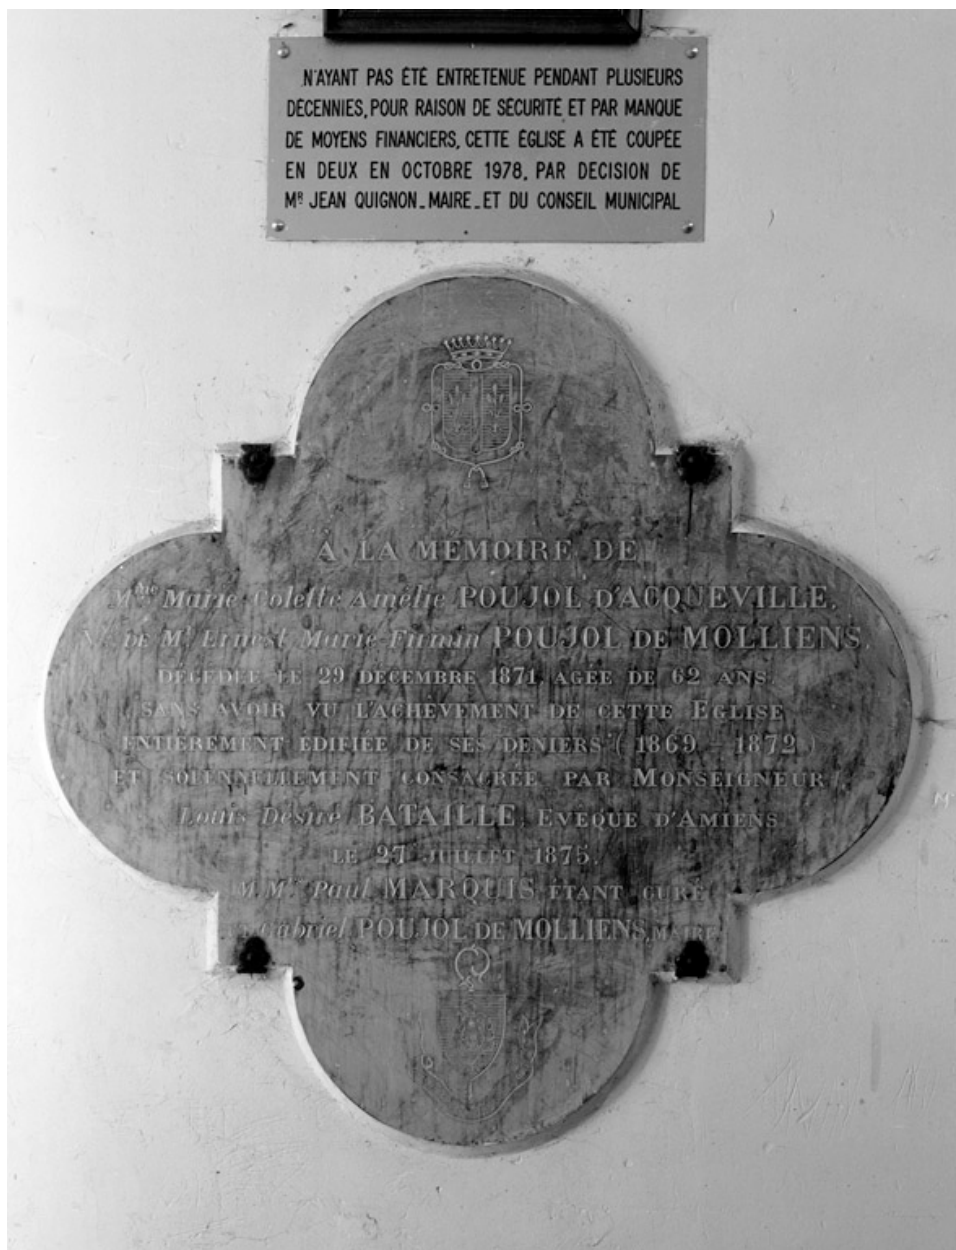 N'AYANT PAS ÉTÉ ENTRETENUE PENDANT PLUSIEURS
DÉCENNIES, POUR RAISON DE SÉCURITÉ ET PAR MANQUE
DE MOYENS FINANCIERS, CETTE ÉGLISE A ÉTÉ COUPÉE
EN DEUX EN OCTOBRE 1978, PAR DECISION DE
MR JEAN QUIGNON_MAIRE_ET DU CONSEIL MUNICIPAL
À LA MÉMOIRE DE
Mme Marie-Colette Amélie POUJOL D'ACQUEVILLE,
Ve DE Mr Ernest Marie-Firmin POUJOL DE MOLLIENS,
DÉCÉDÉE LE 29 DÉCEMBRE 1871, AGÉE DE 62 ANS,
SANS AVOIR VU L'ACHÈVEMENT DE CETTE EGLISE
ENTIÈREMENT EDIFIÉE DE SES DENIERS (1869 - 1872)
ET SOLENNELLEMENT CONSACRÉE PAR MONSEIGNEUR
Louis Désiré BATAILLE, EVÊQUE D'AMIENS
LE 27 JUILLET 1875,
M.Mrs Paul MARQUIS ÉTANT CURÉ
ET Gabriel POUJOL DE MOLLIENS, MAIRE